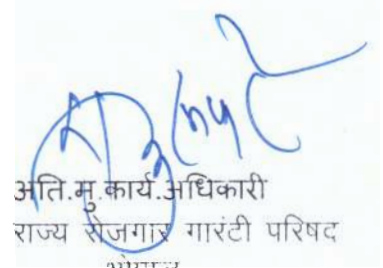 अति.मु.कार्य.अधिकारी
राज्य रोजगार गारंटी परिषद